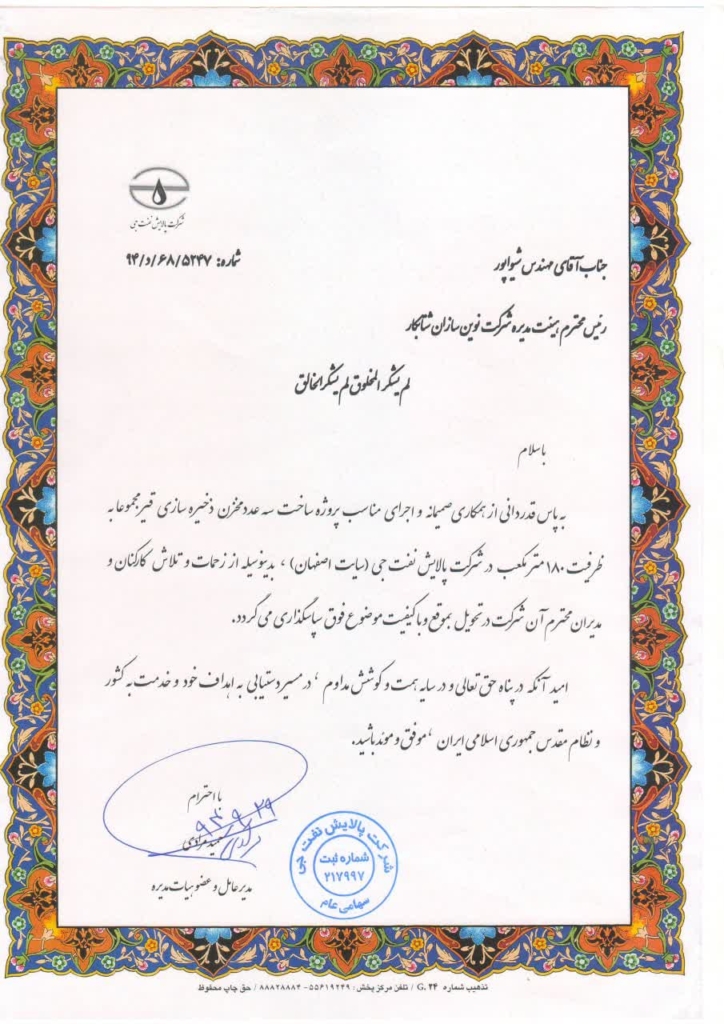 شرکت پالایش نفت جی
شماره: ۹۴/د/۶۸/۵۲۴۷
جناب آقای مهندس شیواپور
رئیس محترم هیئت مدیره شرکت نوین سازان شتابکار
لم یشکر المخلوق لم یشکر الخالق
باسلام
به پاس قدردانی از همکاری صمیمانه و اجرای مناسب پروژه ساخت سه عدد مخزن ذخیره سازی قیر مجموعا به
ظرفیت ۱۸۰ متر مکعب در شرکت پالایش نفت جی (سایت اصفهان) ، بدینوسیله از زحمات و تلاش کارکنان و
مدیران محترم آن شرکت در تحویل بموقع و با کیفیت موضوع فوق سپاسگذاری می گردد.
امید آنکه در پناه حق تعالی و در سایه همت و کوشش مداوم ، در مسیر دستیابی به اهداف خود و خدمت به کشور
و نظام مقدس جمهوری اسلامی ایران ، موفق و موید باشید.
با احترام
مدیر عامل و عضو هیات مدیره
شرکت پالایش نفت جی
شماره ثبت
۲۱۷۹۹۷
سهامی عام
تذهیب شماره G. ۲۴ / تلفن مرکز پخش: ۵۵۶۱۹۲۴۹ - ۸۸۸۲۸۸۸۲ / حق چاپ محفوظ